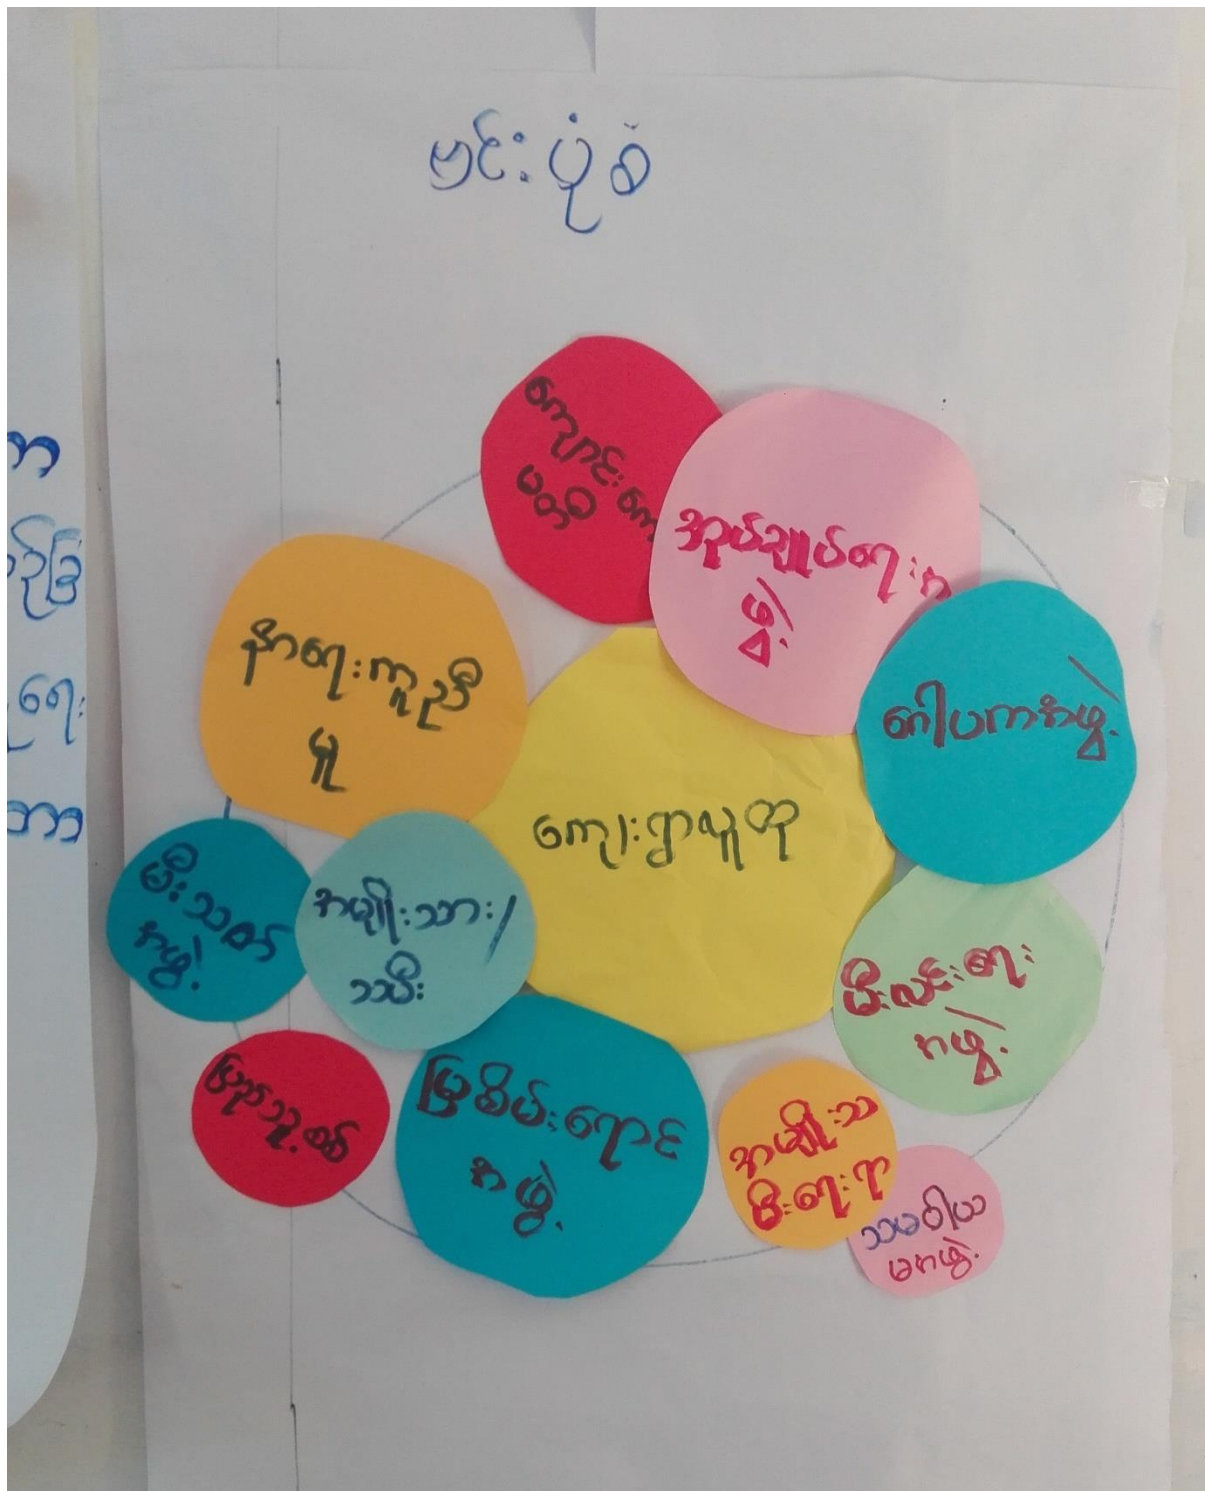 ဗင်းပုံစံ
ကျောင်းကော
မတီ
အုပ်ချုပ်ရေးအ
ဖွဲ့
နာရေးကူညီ
မှု
ဂေါပကအဖွဲ့
ကျေးရွာလူထု
မီးသတ်
အဖွဲ့
အမျိုးသား/
သမီး
မီးလင်းရေး
အဖွဲ့
ပြည်သူ့စစ်
မြစိမ်းရောင်
အဖွဲ့
အမျိုးသ
မီးရေးရာ
သမဝါယ
မအဖွဲ့
ရေး